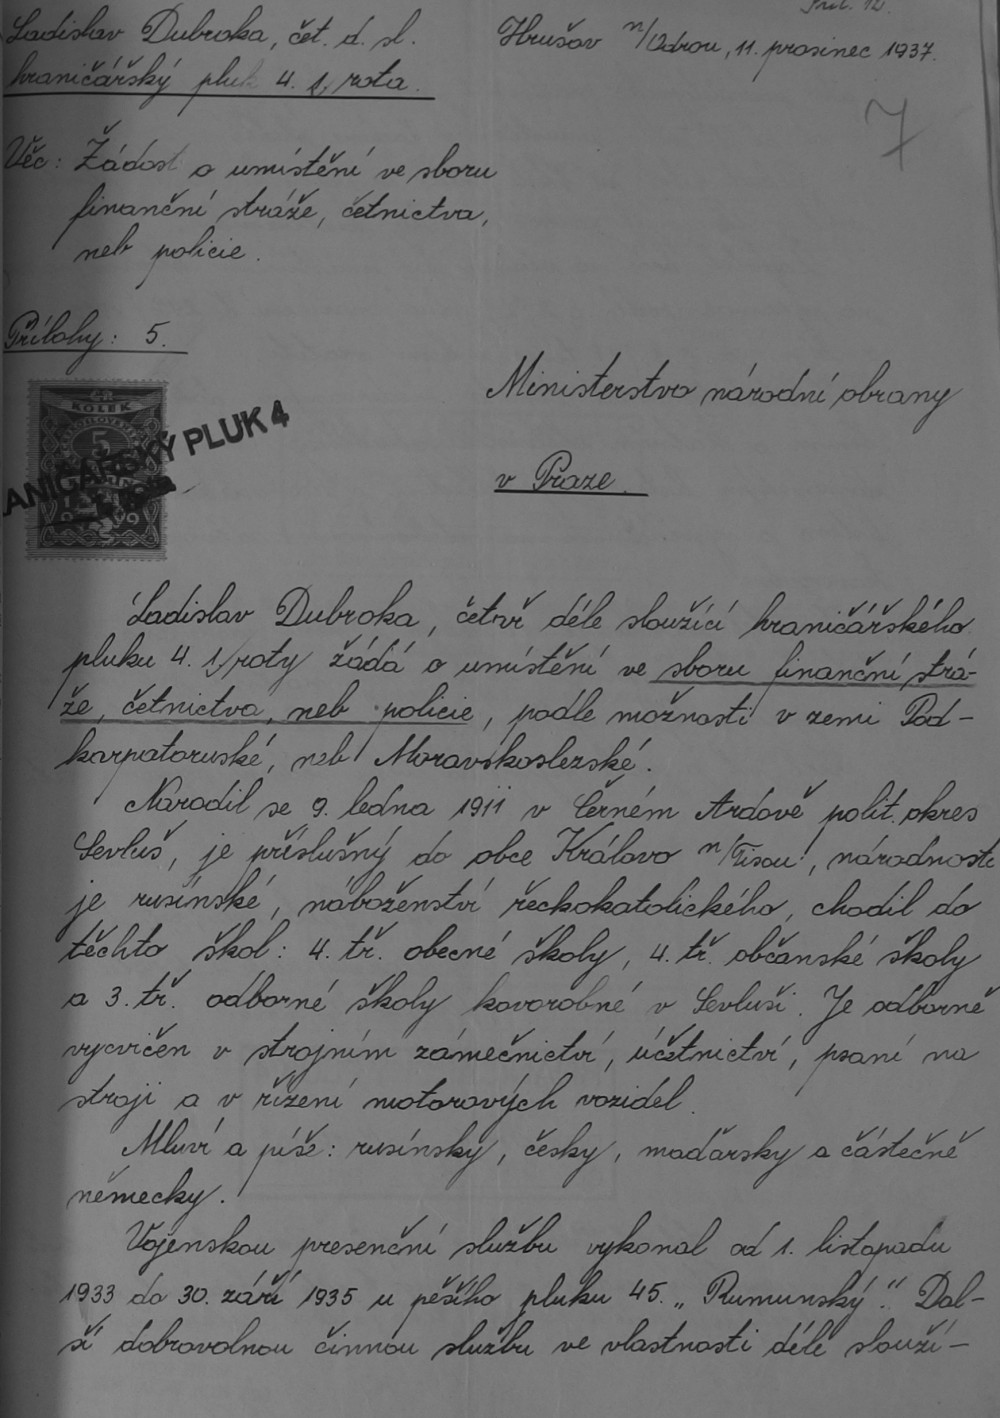 Příl. 12.
Ladislav Dubroka, čet. d. sl.
Hrušov n/Odrou, 11. prosinec 1937.
hraničářský pluk 4. 1/rota.
7
Věc: Žádost o umístění ve sboru
finanční stráže, četnictva,
neb policie.
Přílohy: 5.
Ministerstvo národní obrany
v Praze.
KOLEK
5
ANIČÁŘSKÝ PLUK 4
Ladislav Dubroka, četař déle sloužící hraničářského
pluku 4. 1/roty žádá o umístění ve sboru finanční strá-
že, četnictva, neb policie, podle možnosti v zemi Pod-
karpatoruské, neb Moravskoslezské.
Narodil se 9. ledna 1911 v Černém Ardově polit. okres
Sevluš, je příslušný do obce Královo n/Tisou, národnosti
je rusínské, náboženství řeckokatolického, chodil do
těchto škol: 4. tř. obecné školy, 4. tř. občanské školy
a 3. tř. odborné školy kovorobné v Sevluši. Je odborně
vycvičen v strojním zámečnictví, účetnictví, psaní na
stroji a v řízení motorových vozidel.
Mluví a píše: rusínsky, česky, maďarsky a částečně
německy.
Vojenskou presenční službu vykonal od 1. listopadu
1933 do 30. září 1935 u pěšího pluku 45. „Rumunský". Dal-
ší dobrovolnou činnou službu ve vlastnosti déle slouží-